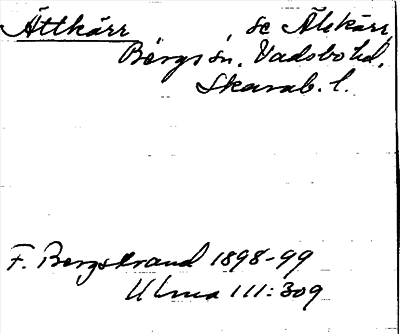 Ättkärr se Älekärr,
Bergs sn. Vadsbo hd.
Skarab. l.
F. Bergstrand 1898-99
Ulma 111:309